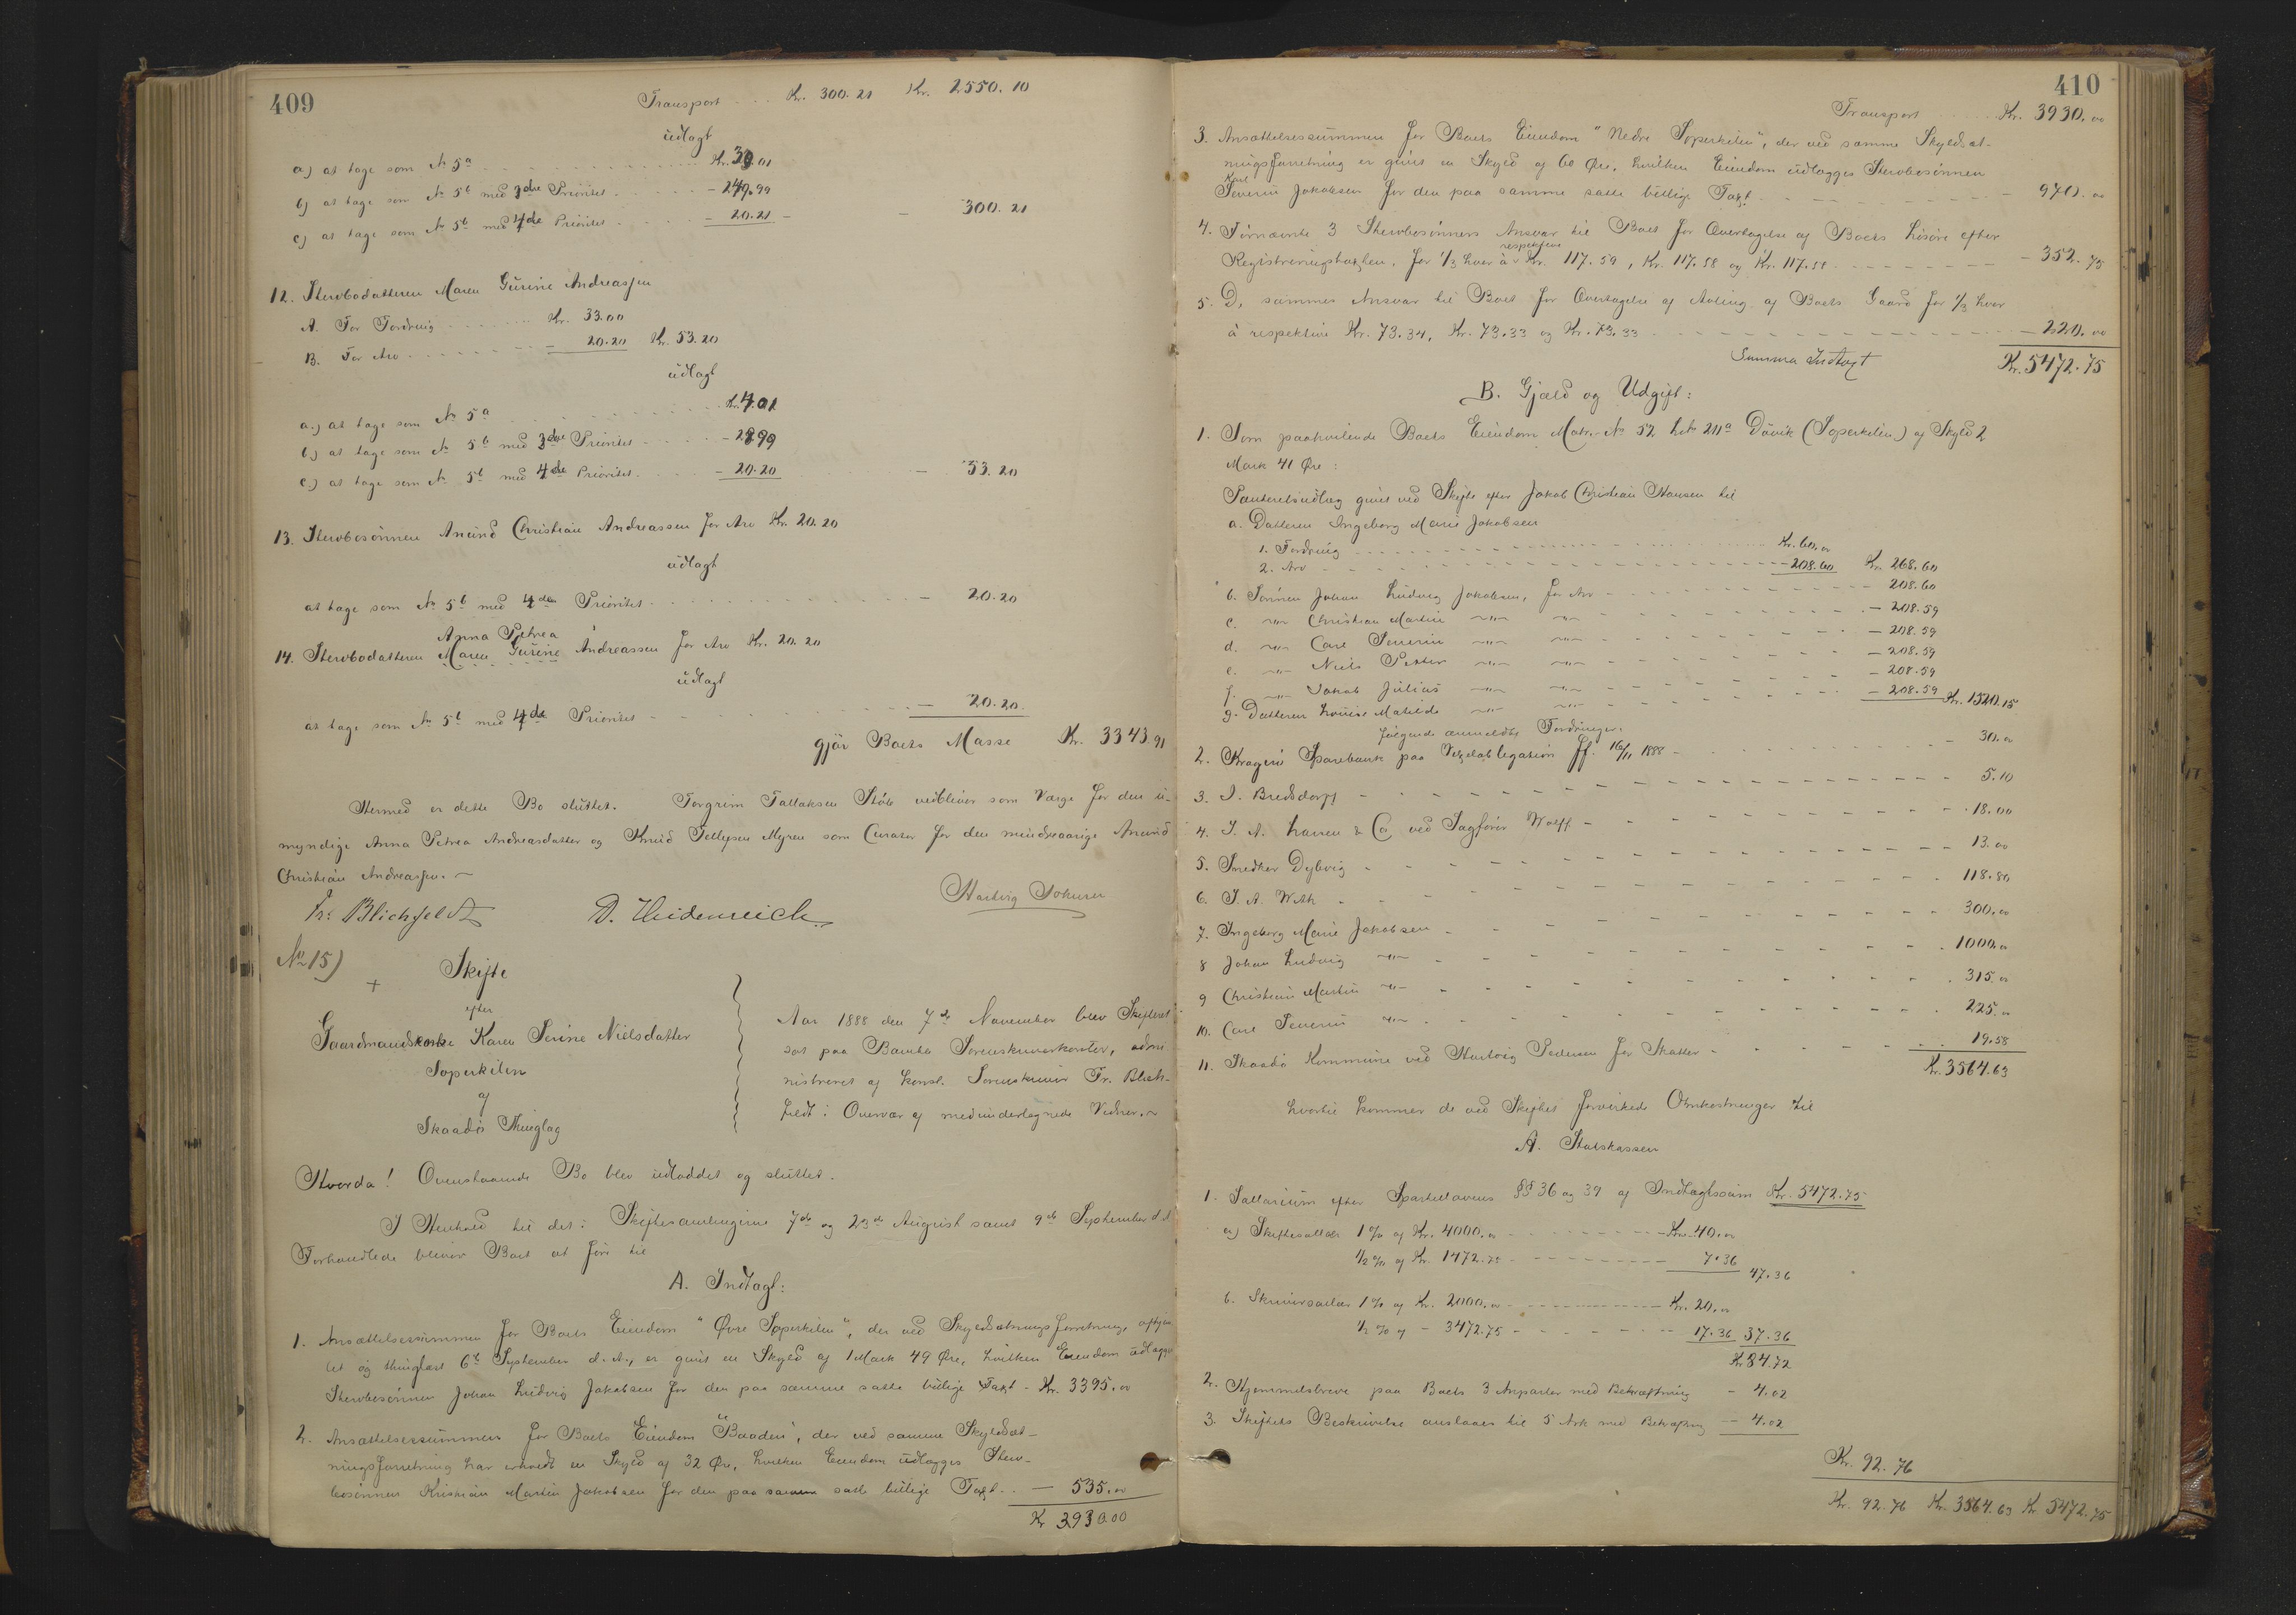 409
Transport Kr. 300.21 Kr. 2550.10
udlagt
a) at tage som № 5a Kr. 30.01
b) at tage som № 5b med 3die Prioritet - 249.99
c) at tage som № 5b med 4de Prioritet - 20.21 - - 300.21
12. Stervbodatteren Maren Gurine Andreassen
A. For Fordring Kr. 33.00
B. For Arv - 20.20 Kr. 53.20
udlagt
a.) at tage som № 5a Kr. 4.01
b.) at tage som № 5b med 3die Prioritet - 28.99
c.) at tage som № 5b med 4de Prioritet - 20.20 - 53.20
13. Stervbosønnen Anund Christian Andreassen for Arv Kr. 20.20
udlagt
at tage som № 5b med 4de Prioritet - 20.20
Anna Petrea
14. Stervbodatteren Maren Gurine Andreassen for Arv Kr. 20.20
udlagt
at tage som № 5b med 4de Prioritet - 20.20.
gjør Boets Masse Kr. 3343.91
Hermed er dette Bo sluttet. Torgrim Tallaksen Støle vedbliver som Værge for den u-
myndige Anna Petrea Andreasdatter og Knud Tellefsen Myren som Curator for den mindreaarige Anund
Christian Andreassen.
Fr. Blichfeldt D. Heidenreich. Hartvig
№ 15)
+ Skifte
efter
Gaardmandskone Karen Serine Nielsdatter
Soperkilen
af
Skaadø Thinglag
Aar 1888 den 7de November blev Skifteret
sat paa Bamble Sorenskriverkontor, admi-
nistreret af konst. Sorenskriver Fr. Blich-
feldt i Overvær af medundertegnede Vidner.
Hvorda! Ovenstaaende Bo blev udloddet og sluttet.
I Henhold til det i Skiftesamlingerne 7de og 23de August samt 9de September d. A.
Forhandlede bliver Boet at føre til
A. Indtægt:
1. Ansættelsessummen for Boets Eiendom "Øvre Soperkilen", der ved Skyldsætningsforretning, afhjem
let og thinglæst 6te September d. A., er givet en Skyld af 1 Mark 49 Øre, hvilken Eiendom udlægges
Stervbosønnen Johan Ludvig Jakobsen for den paa samme satte billige Taxt - Kr. 3395.00
2. Ansættelsessummen for Boets Eiendom "Baaden", der ved samme Skyldsæt-
ningsforretning har erholdt en Skyld af 32 Øre, hvilken Eiendom udlægges Sterv-
bosønnen Kristian Martin Jakobsen for den paa samme satte billige Taxt - 535.00
Kr 3930.00
410
Transport Kr. 3930.00
3. Ansættelsessummen for Boets Eiendom "Nedre Soperkilen", der ved samme Skyldsæt-
ningsforretning er givet en Skyld af 60 Øre, hvilken Eiendom udlægges Stervbosønnen
Karl
Severin Jakobsen for den paa samme satte billige Taxt - 970.00
4. Førnævnte 3 Stervbosønners Ansvar til Boet for Overtagelse af Boets Løsøre efter
respektive
Registreringstaxten, for 1/3 hver à Kr. 117.59, Kr. 117.58 og Kr. 117.58 - 352.75
5. D, sammes Ansvar til Boet for Overtagelse af Avling af Boets Gaard for 1/3 hver
à respektive Kr. 73.34, Kr. 73.33 og Kr. 73.33 - 220.00
Summa Indtægt Kr. 5472.75
B. Gjæld og Udgift:
1. Som paahvilende Boets Eiendom Matr. № 52 L№ 211a Døvik (Soperkilen) af Skyld 2
Mark 41 Øre:
Panteretsudlæg givet ved Skifte efter Jakob Christian Hansen til
a. Datteren Ingeborg Marie Jakobsen
1. Fordring Kr. 60.00
2. Arv - 208.60 Kr. 268.60
b. Sønnen Johan Ludvig Jakobsen, for Arv - 208.60
c. -"- Christian Martin -"- -"- - 208.59
d. -"- Carl Severin -"- -"- - 208.59
e. -"- Niels Petter -"- -"- - 208.59
f. -"- Jakob Julius -"- -"- - 208.59
g. Datteren Louise Matilde -"- -"- - 208.59 Kr. 1520.15
følgende anmeldte Fordringer:
2. Kragerø Sparebank paa Vexelobligation Jf. 16/11 1888 - 30.00
3. J. Bredsdorff - 5.10
4. J. A. Larsen & Co ved Sagfører Wolff - 18.00
5. Smedker Dybvig - 13.00
6. J. A. With - 118.80
7. Ingeborg Marie Jakobsen - 300.00
8 Johan Ludvig -"- - 1000.00
9 Christian Martin -"- - 315.00
10. Carl Severin -"- - 225.00
11. Skaadø Kommune ved Hartvig Pedersen for Skatter - 19.58
Kr. 3564.63
hvortil kommer de ved Skiftet forvirkede Omkostninger til
A. Statskassen
1. Sallarium efter Sportellovens §§ 36 og 39 af Indtægtssum Kr. 5472.75
a) Skiftesallær 1 % af Kr. 4000.00 - Kr. 40.00
1/2 % af Kr. 1472.75 - 7.36 47.36
b. Skriversallær 1 % af Kr. 2000.00 - Kr. 20.00
1/2 % af - 3472.75 - 17.36 37.36
Kr 84.72
2. Hjemmelsbreve paa Boets 3 Anparter med Bekræftning - 4.02
3. Skiftets Beskrivelse anslaaes til 5 Ark med Bekræftng - 4.02
Kr. 92.76
Kr. 92.76 Kr. 3564.63 Kr 5472.75